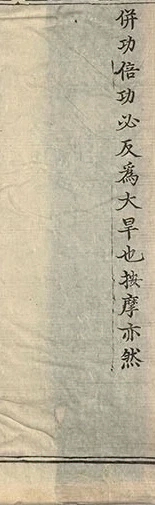 併功倍功必反爲大旱也按摩亦然